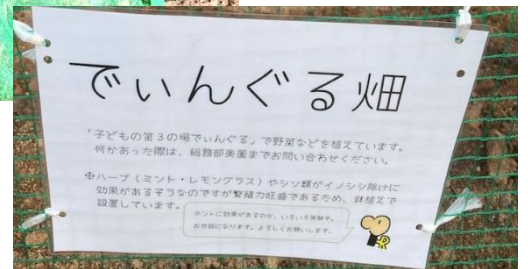 でぃんぐる畑
「子どもの第3の場でぃんぐる」で野菜などを植えています。
何かあった際は、総務部美薗までお問い合わせください。
※ハーブ(ミント・レモングラス)やシソ類がイノシシ除けに
効果があるそうなのですが繁殖力旺盛であるため、鉢植えで
設置しています。
ホントに効果があるのか、いろいろ実験中。
お世話になります。よろしくお願いします。